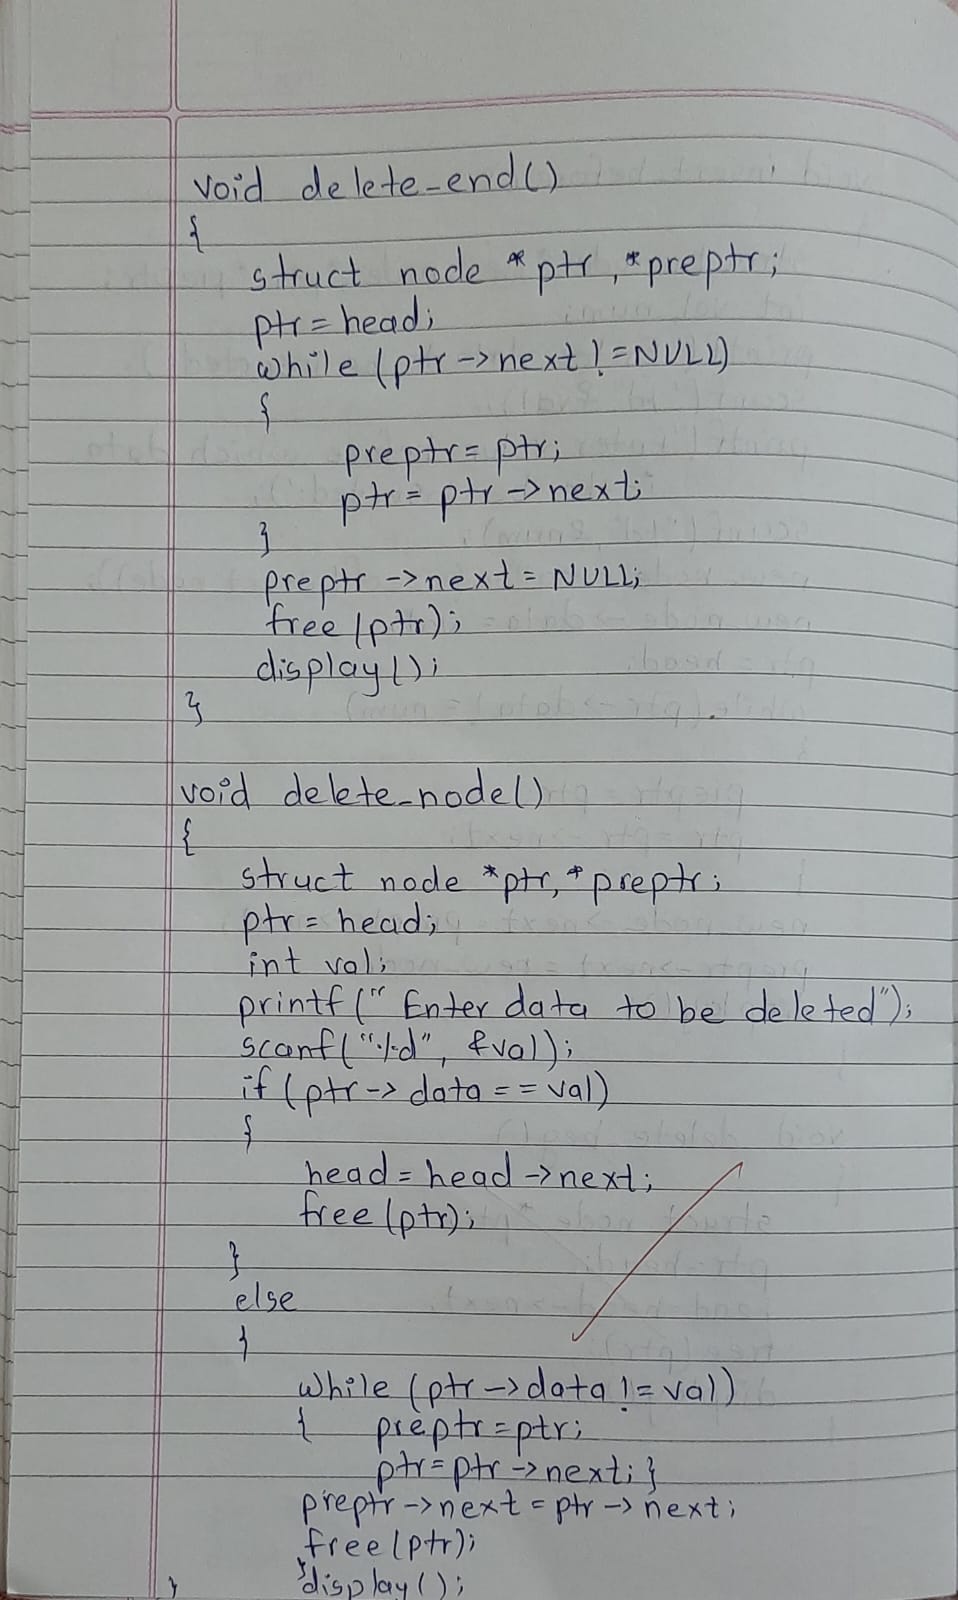 void delete-end()
{
struct node *ptr, *preptr;
ptr = head;
while (ptr -> next != NULL)
{
preptr = ptr;
ptr = ptr -> next;
}
preptr -> next = NULL;
free (ptr);
display();
}
void delete-node()
{
struct node *ptr, *preptr;
ptr = head;
int val;
printf(" Enter data to be deleted");
scanf("%d", &val);
if (ptr -> data == val)
{
head = head -> next;
free (ptr);
}
else
}
while (ptr -> data != val)
{ preptr = ptr;
ptr = ptr -> next; }
preptr -> next = ptr -> next;
free (ptr);
} } display();